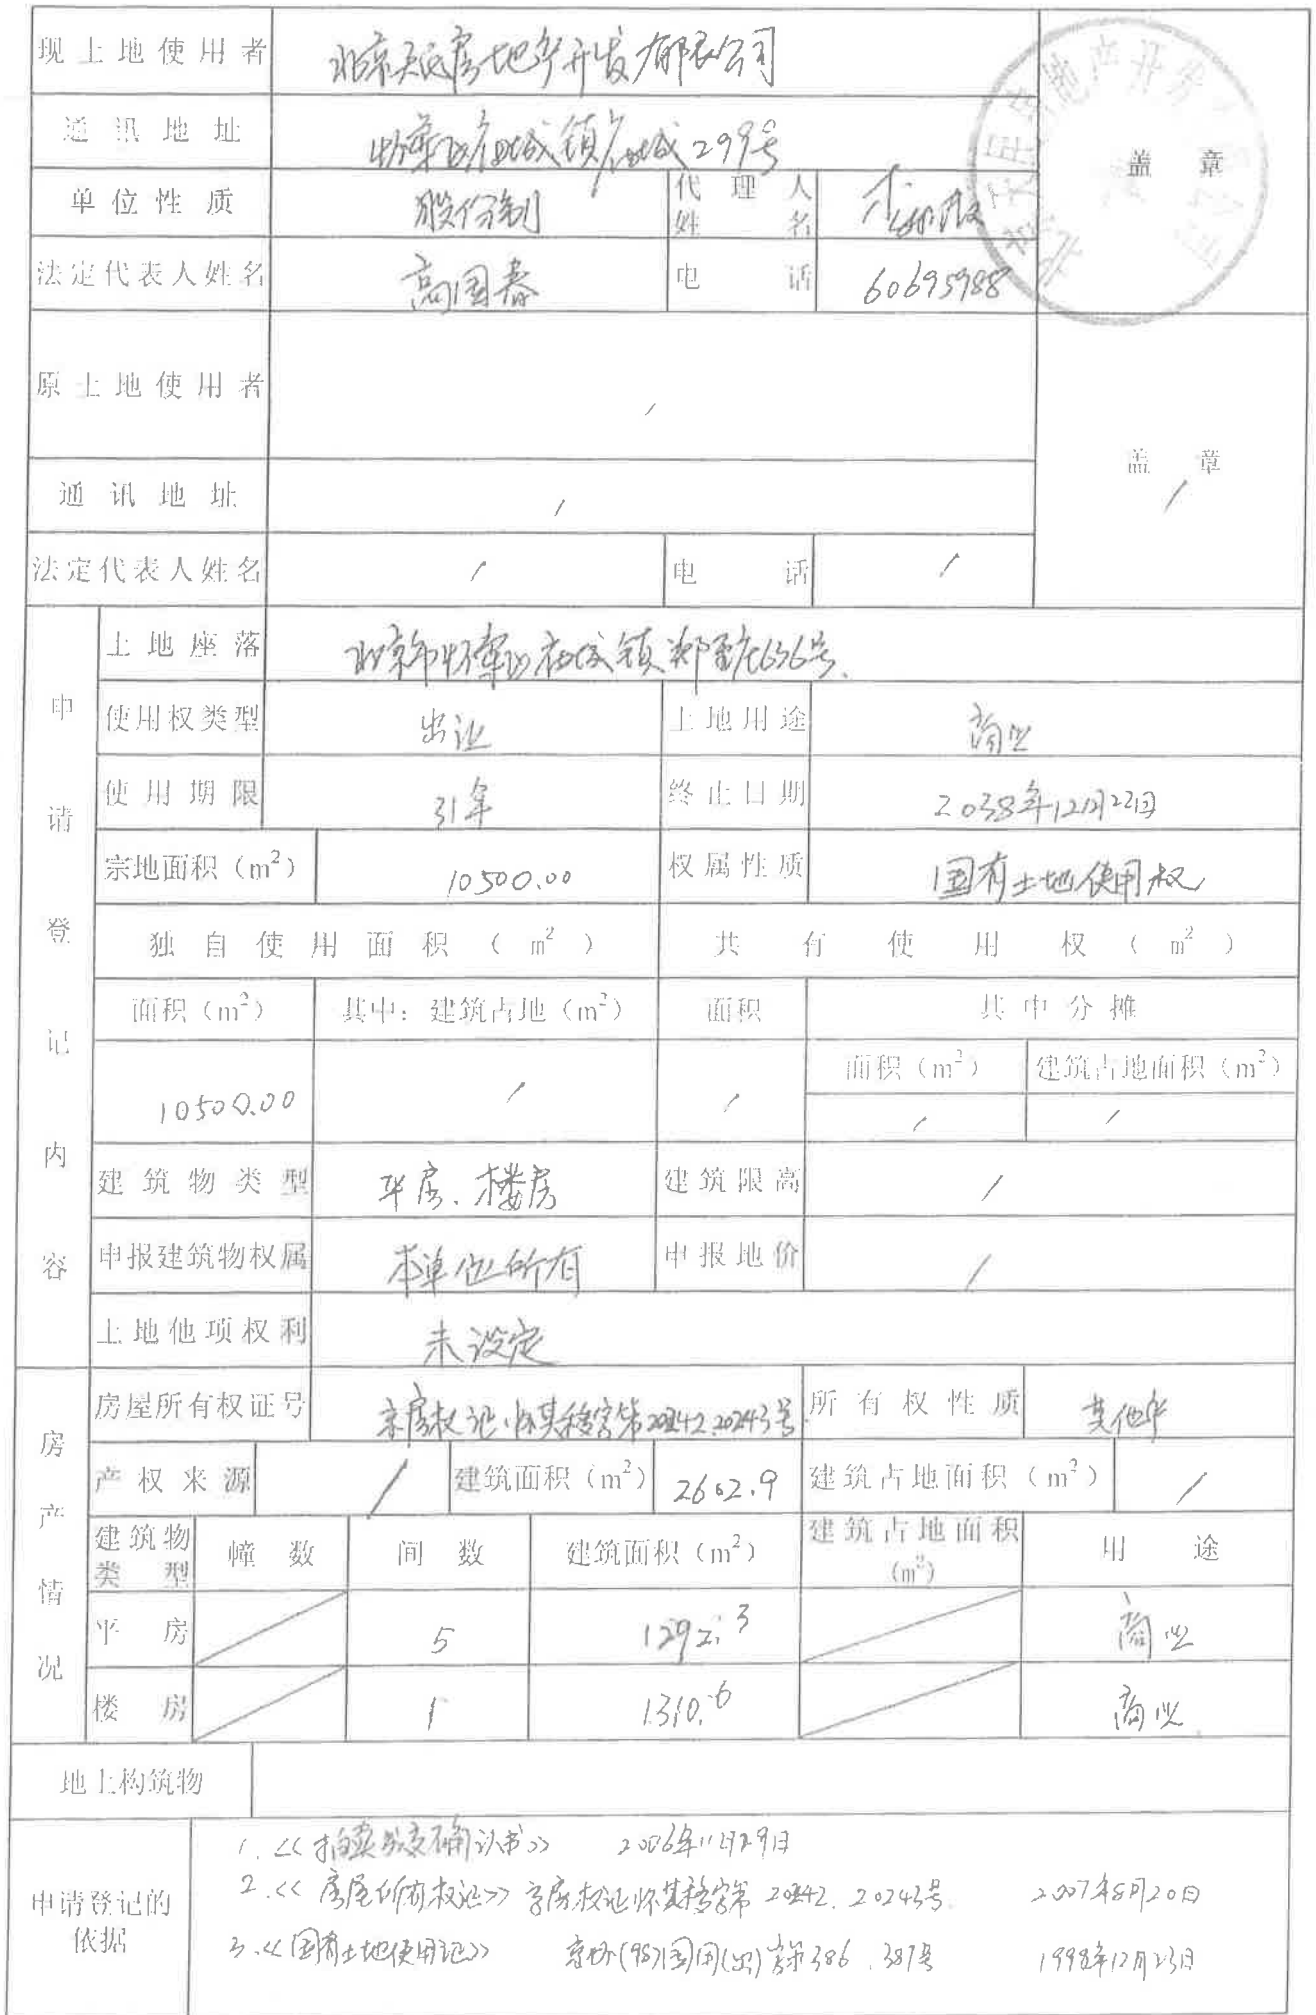 现土地使用者 北京天民房地产开发有限公司
盖 章
通讯地址 怀柔区庙城镇庙城299号
单位性质 股份制 代理人姓名
法定代表人姓名 高国春 电话 60695988
原土地使用者 /
盖 章 /
通讯地址 /
法定代表人姓名 / 电话 /
申请登记内容
土地座落 北京市怀柔区庙城镇郑重庄636号
使用权类型 出让 土地用途 商业
使用期限 31年 终止日期 2038年12月22日
宗地面积（m²） 10500.00 权属性质 国有土地使用权
独自使用面积（m²） 共有使用权（m²）
面积（m²） 其中：建筑占地（m²） 面积 其中分摊
面积（m²） 建筑占地面积（m²）
10500.00 / / / /
建筑物类型 平房、楼房 建筑限高 /
申报建筑物权属 本单位所有 申报地价 /
土地他项权利 未设定
房产情况
房屋所有权证号 京房权证怀其移字第20242.20243号 所有权性质 其他产
产权来源 / 建筑面积（m²） 2602.9 建筑占地面积（m²） /
建筑物类型 幢数 间数 建筑面积（m²） 建筑占地面积（m²） 用途
平房 5 1292.3 商业
楼房 1 1310.6 商业
地上构筑物
申请登记的依据
1.<<拍卖成交确认书>> 2006年11月29日
2.<<房屋所有权证>>京房权证怀其移字第20242.20243号 2007年8月20日
3.<<国有土地使用证>> 京怀(98)国用(出)字第386.387号 1998年12月23日